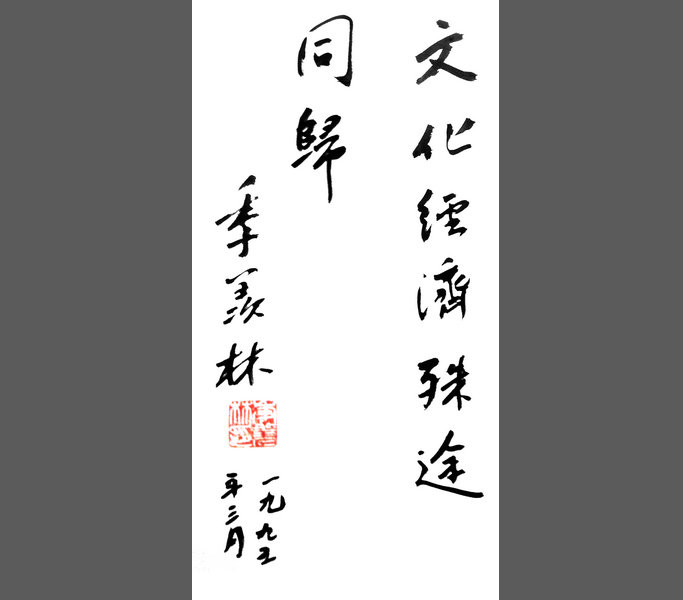 文化經濟殊途
同歸
季羡林
一九九五
年三月